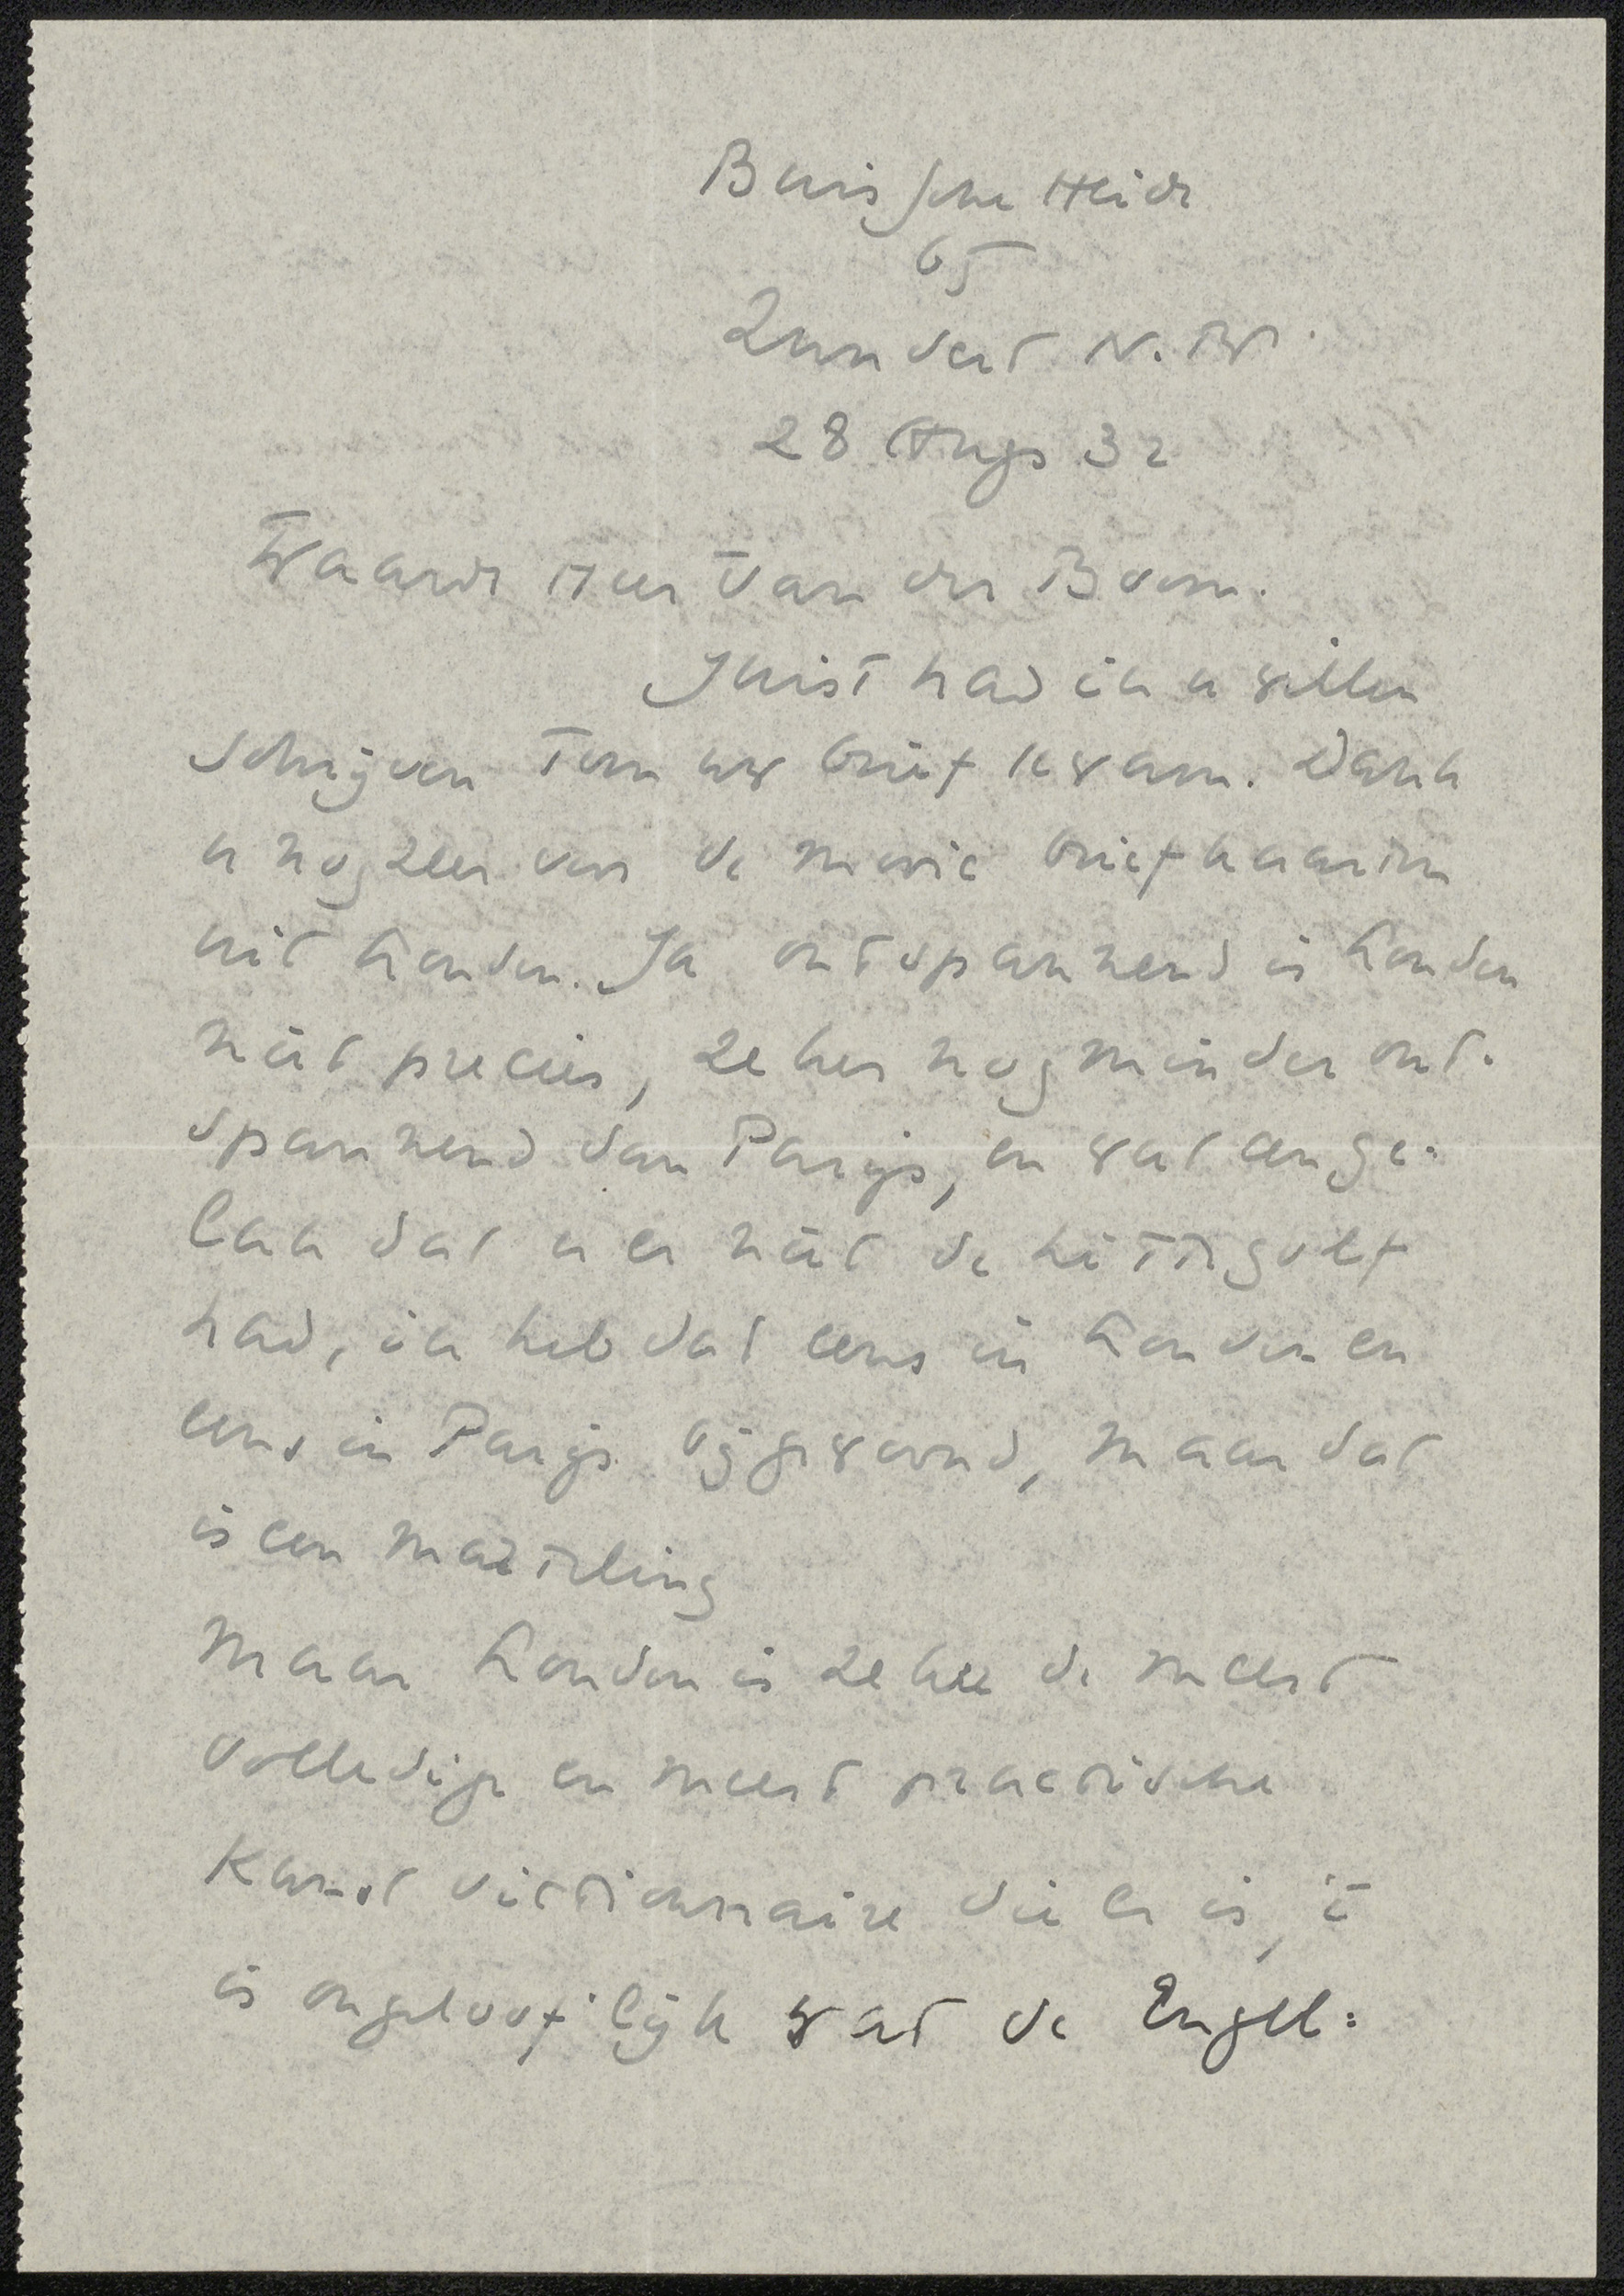 Buissche Heide
65
Zundert N.B.
28 Augs 32
Waarde Heer van der Boom.
Juist had ik u willen
schrijven toen uw brief kwam. Dank
u nog zeer voor de mooie briefkaarten
uit Londen. Ja ontspannend is Londen
niet precies, zeker nog minder ont-
spannend dan Parijs, en wat een ge-
luk dat u er niet de hittegolf
had, ik heb dat eens in Londen en
eens in Parijs bijgewoond, maar dat
is een marteling
Maar Londen is zeker de meest
volledige en meest practische
Kunst dictionnaire die er is, 't
is ongeloof-lijk wat de Engel: